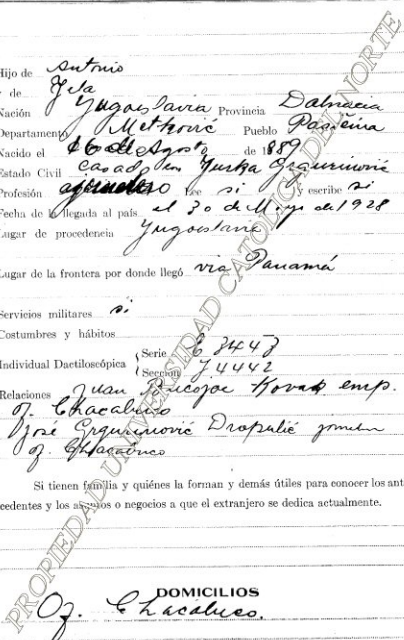 Hijo de Antonio
y de Jela
Nación Yugoeslavia Provincia Dalmacia
Departamento Metković Pueblo
Nacido el 16 de Agosto de 1889
Estado Civil casado con Jurka Grgurinović
Profesión Lee si y escribe si
Fecha de la llegada al país el 30 de Mayo de 1928
Lugar de procedencia Yugoeslavia
Lugar de la frontera por donde llegó via Panamá
Servicios militares si
Costumbres y hábitos
Individual Dactiloscópica Serie E 3443
Sección J. 4442
Relaciones Juan Kovač emp.
of. Chacabuco
José Grgurinović Dropulić
of. Chacabuco
Si tienen familia y quiénes la forman y demás útiles para conocer los ant
cedentes y los asuntos o negocios a que el extranjero se dedica actualmente.
DOMICILIOS
Of. Chacabuco.
PROPIEDAD UNIVERSIDAD CATOLICA DEL NORTE